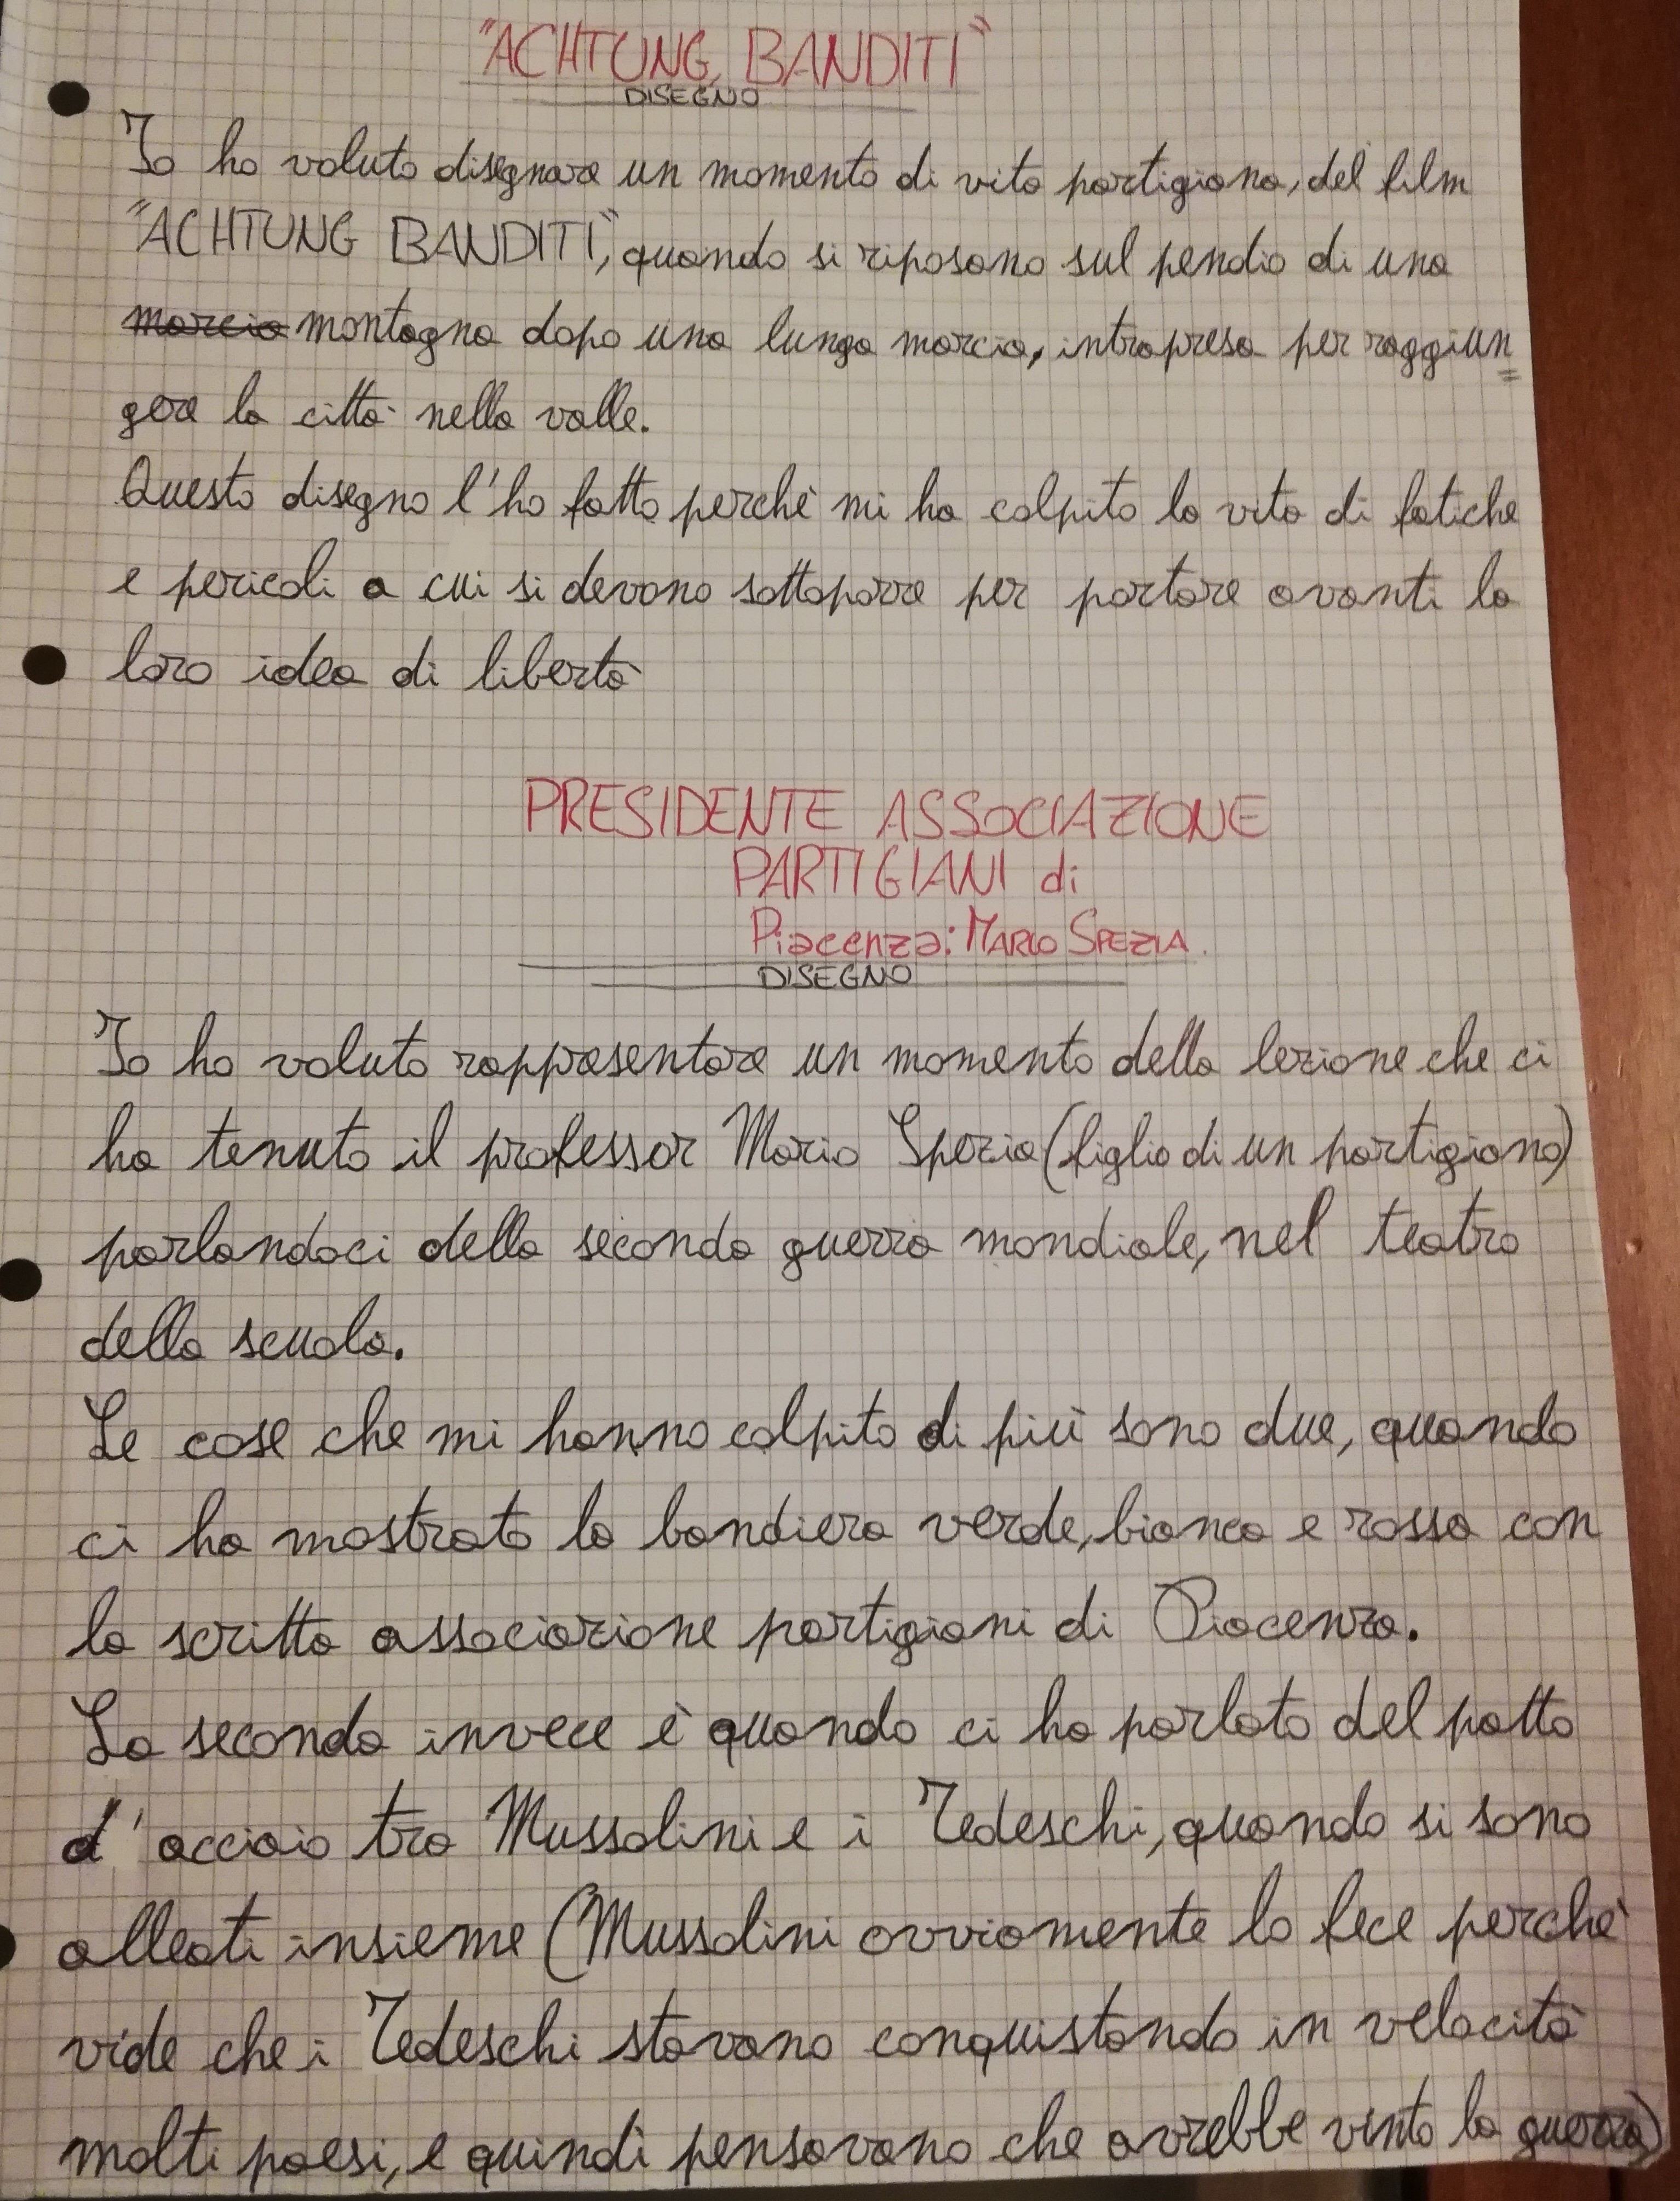 "ACHTUNG, BANDITI"
DISEGNO
Io ho voluto disegnare un momento di vita partigiana, del film
"ACHTUNG BANDITI", quando si riposano sul pendio di una
marcia montagna dopo una lunga marcia, intrapresa per raggiun=
gere la città nella valle.
Questo disegno l'ho fatto perchè mi ha colpito la vita di fatiche
e pericoli a cui si devono sottoporre per portare avanti la
loro idea di libertà
PRESIDENTE ASSOCIAZIONE
PARTIGIANI di
Piacenza: MARIO SPEZIA.
DISEGNO
Io ho voluto rappresentare un momento della lezione che ci
ha tenuto il professor Mario Spezia (figlio di un partigiano)
parlandoci della seconda guerra mondiale, nel teatro
della scuola.
Le cose che mi hanno colpito di più sono due, quando
ci ha mostrato la bandiera verde, bianca e rossa con
la scritta associazione partigiani di Piacenza.
La seconda invece è quando ci ha parlato del patto
d'acciaio tra Mussolini e i Tedeschi, quando si sono
alleati insieme (Mussolini ovviamente lo fece perchè
vide che i Tedeschi stavano conquistando in velocità
molti paesi, e quindi pensavano che avrebbe vinto la guerra)